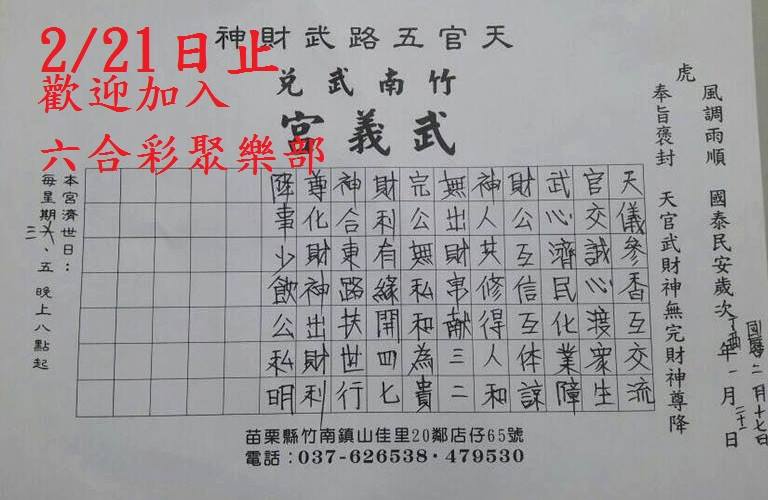 2/21日止
歡迎加入
六合彩聚樂部
天官五路武財神
竹南武兌
武義宮
虎
風調雨順 國泰民安歲次丁酉年一月二十一日
國曆二月十七日
奉旨褒封 天官武財神無完財神尊降
天儀參香互交流
官交誠心渡眾生
武心濟民化業障
財公互信互体諒
神人共修得人和
無出財帛献三二
完公無私和為貴
財利有緣開四七
神合東路扶世行
尊化財神出財利
陞事少飲公私明
本宮濟世日：
每星期三、五 晚上八點起
苗栗縣竹南鎮山佳里20鄰店仔65號
電話：037-626538·479530